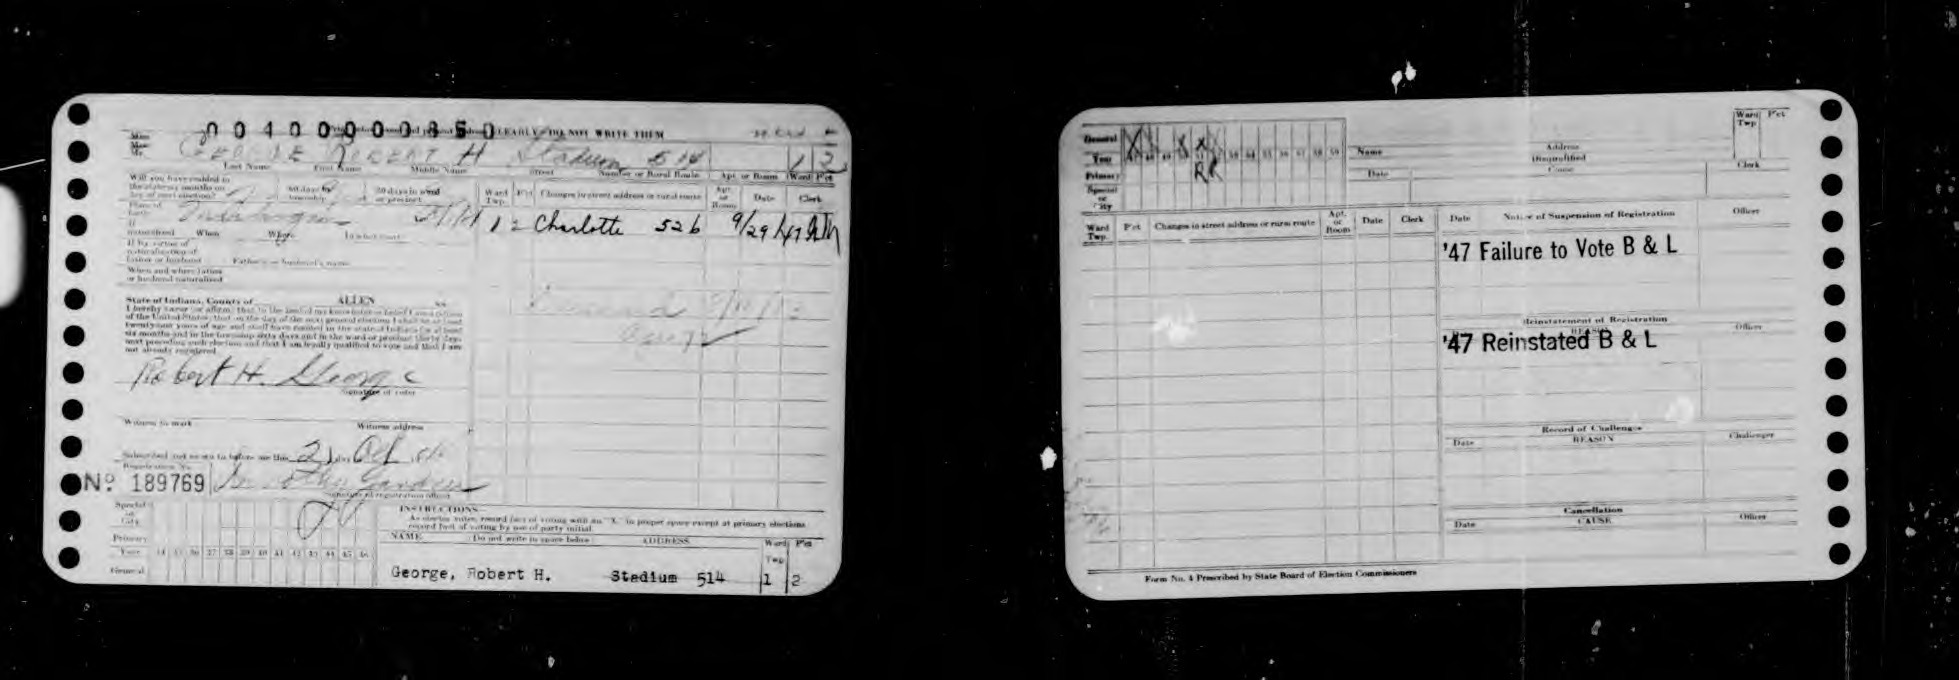 0040000350
CLEARLY—DO NOT WRITE THEM
Miss
Mrs.
Mr. GEORGE ROBERT H Stadium 514 1 2
Last Name First Name Middle Name Street Number or Rural Route Apt. or Room Ward Pct
Will you have resided in
the state six months on
day of next election?
60 days in
township
30 days in ward
or precinct
Ward
Twp. Pct Changes in street address or rural route Apt.
or
Room Date Clerk
Place of
birth
1 2 Charlotte 526 9/29/47
If
naturalized When Where In what court
If by virtue of
naturalization of
father or husband Father's or husband's name
When and where father
or husband naturalized
State of Indiana, County of ALLEN ss
I hereby swear (or affirm) that to the best of my knowledge or belief I am a citizen
of the United States; that on the day of the next general election I shall be at least
twenty-one years of age and shall have resided in the state of Indiana for at least
six months and in the township sixty days and in the ward or precinct thirty days
next preceding such election and that I am legally qualified to vote and that I am
not already registered.
Robert H. George
Signature of voter
Witness to mark Witness address
Subscribed and sworn to before me this 21 day
Registration No.
No 189769
Signature of registration officer
Special
or
City
Primary
Year 34 35 36 37 38 39 40 41 42 43 44 45 46
General
INSTRUCTIONS
As elector votes, record fact of voting with an "X" in proper space except at primary elections
record fact of voting by use of party initial.
NAME (Do not write in space below) ADDRESS Ward
Twp Pct
George, Robert H. Stadium 514 1 2
General X X X
Year 48 49 53 54 55 56 57 58 59
Primary R R
Special
or
City
Name Address
Disqualified
Date Cause
Ward
Twp Pct
Clerk
Ward
Twp. Pct Changes in street address or rural route Apt.
or
Room Date Clerk
Date Notice of Suspension of Registration Officer
'47 Failure to Vote B & L
Reinstatement of Registration
REASON Officer
'47 Reinstated B & L
Record of Challenges
Date REASON Challenger
Cancellation
Date CAUSE Officer
Form No. 4 Prescribed by State Board of Election Commissioners